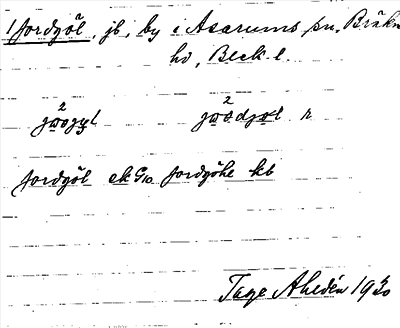 1 Jordgöl, jb, by i Asarums sn, Bräkne
hd, Blek. l.
2 2
jωogyl jωodjøl r
Jordgöl ek G10 Jordgöhe kb
Tage Ahldén 1930